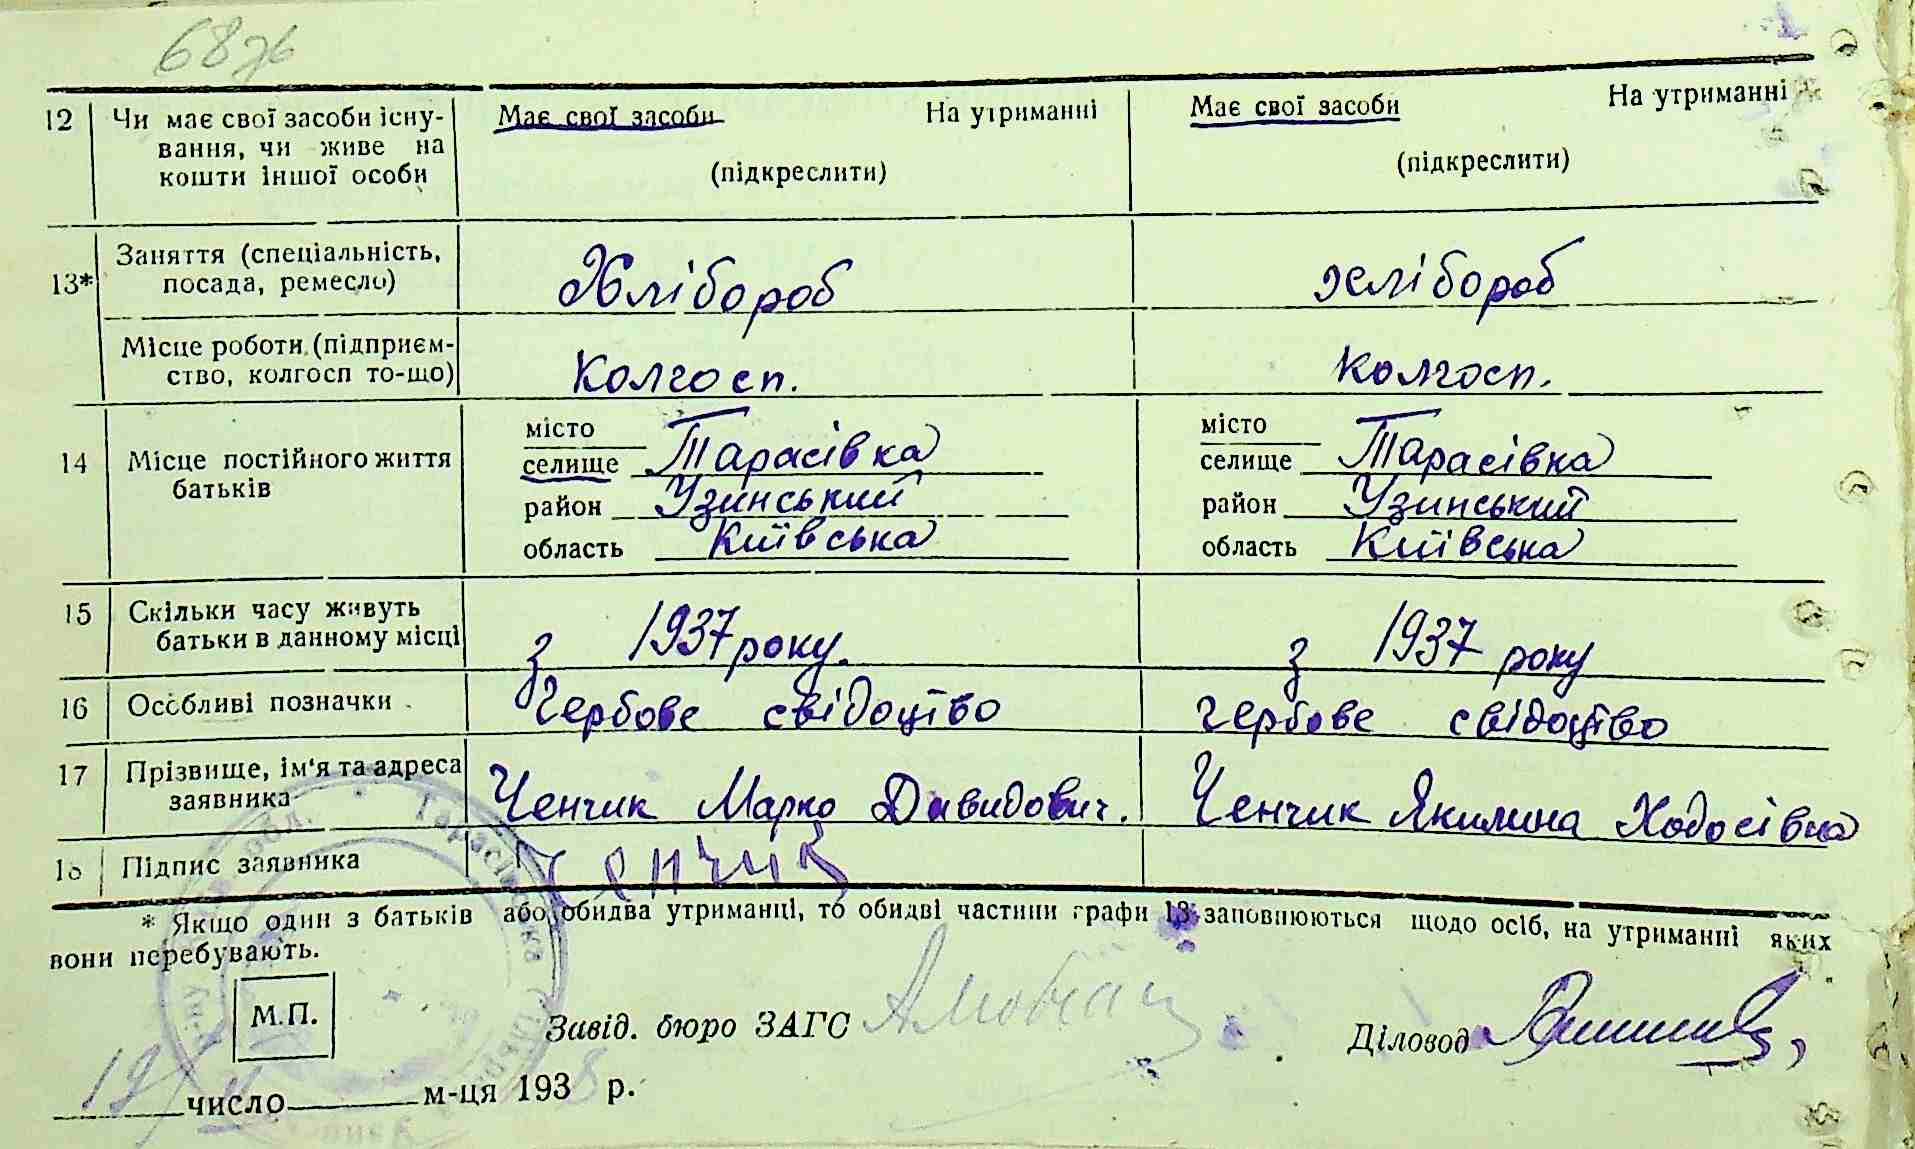 68
12 Чи має свої засоби існу- Має свої засоби На утриманні Має свої засоби На утриманні
вання, чи живе на
кошти іншої особи (підкреслити) (підкреслити)
13* Заняття (спеціальність,
посада, ремесло) Хлібороб хлібороб
Місце роботи (підприєм-
ство, колгосп то-що) Колгосп. Колгосп.
14 Місце постійного життя
батьків
місто місто
селище Тарасівка селище Тарасівка
район Узинський район Узинський
область Київська область Київська
15 Скільки часу живуть
батьки в данному місці з 1937 року. з 1937 року
16 Особливі позначки Гербове свідоцтво гербове свідоцтво
17 Прізвище, ім'я та адреса
заявника Ченчик Марко Давидович. Ченчик Якилина Ходосівна
18 Підпис заявника Ченчик
* Якщо один з батьків або обидва утриманці, то обидві частини графи 13 заповнюються щодо осіб, на утриманні яких
вони перебувають.
М.П. Завід. бюро ЗАГС Діловод
19 число м-ця 1938 р.